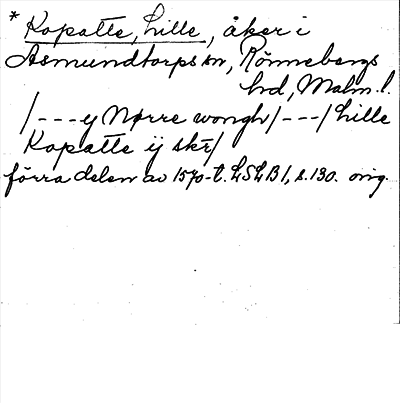 * Kopatte, Lille, åker i
Asmundtorps sn, Rönnebergs
hd, Malm. l.
/---y Nørre wongh/---/ Lille
Kopatte ij skr/
förra delen av 1570-t. LSLB1, s. 130. orig.